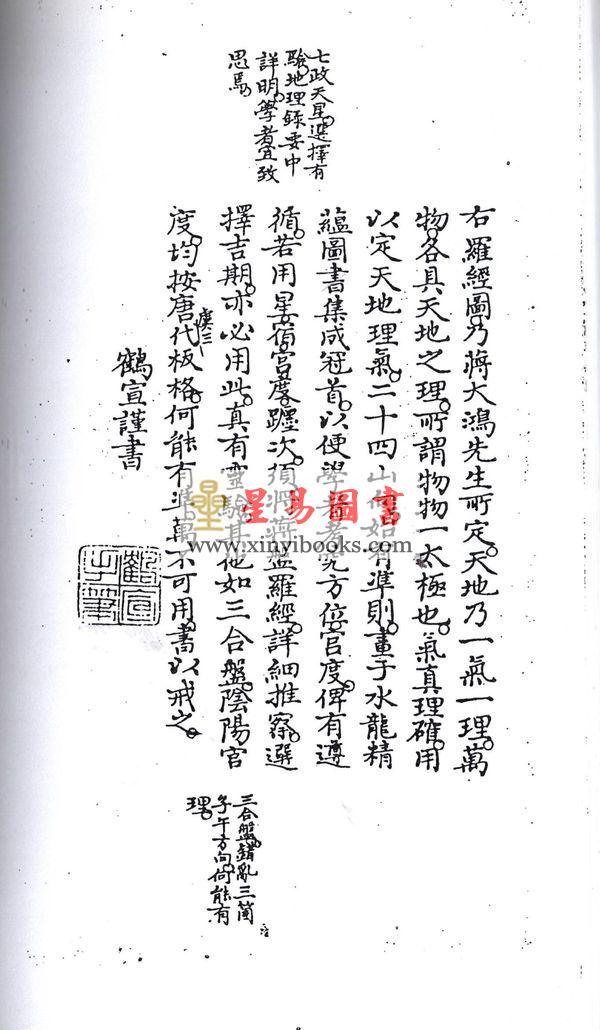 七政天星。選擇有
驗。地理錄要中
詳明。學者宜致
思焉。
右羅經圖。乃蔣大鴻先生所定。天地乃一氣一理。萬
物。各具天地之理。所謂物物一太極也。氣真理確。用
以定天地理氣。二十四山備始有準則。畫于水龍精
蘊圖書集成冠首。以便學者究方位宮度。俾有遵
循。若用星宿宮度躔次。須將蔣盤羅經。詳細推察。選
擇吉期。亦必用此。真有靈驗。其他如三合盤。陰陽宮
度。均按唐代板格。何能有準。萬不可用。書以戒之。
鶴宣謹書
鶴宣
手筆
三合盤。錯亂三箇
子午方向。何能有
理。
星易圖書
www.xinyibooks.com